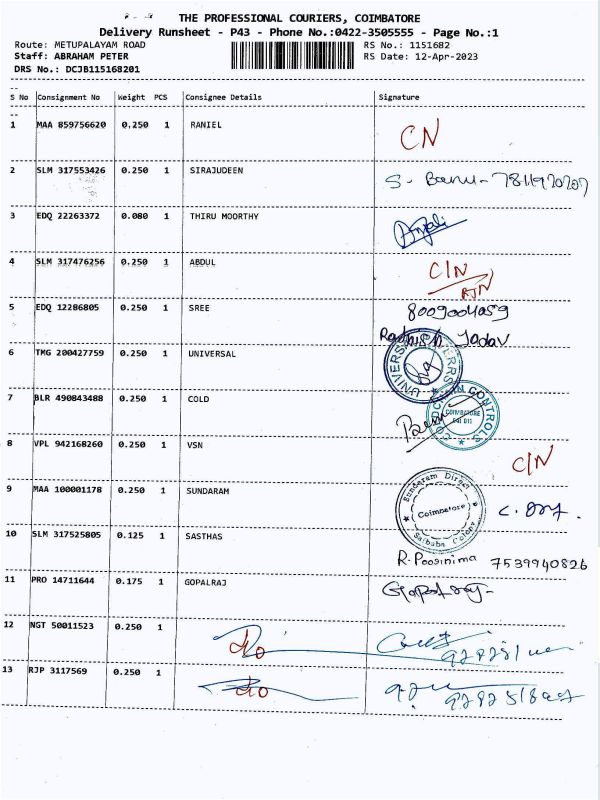 THE PROFESSIONAL COURIERS, COIMBATORE
Delivery Runsheet - P43 - Phone No.:0422-3505555 - Page No.:1
Route: METUPALAYAM ROAD RS No.: 1151682
Staff: ABRAHAM PETER RS Date: 12-Apr-2023
DRS No.: DCJB115168201
S No Consignment No Weight PCS Consignee Details Signature
1 MAA 859756620 0.250 1 RANIEL CN
2 SLM 317553426 0.250 1 SIRAJUDEEN S. Banu - 7811970207
3 EDQ 22263372 0.080 1 THIRU MOORTHY Anjali
4 SLM 317476256 0.250 1 ABDUL C/N
RTN
5 EDQ 12286805 0.250 1 SREE 8009004059
Yadav
6 TMG 200427759 0.250 1 UNIVERSAL
7 BLR 490843488 0.250 1 COLD COIMBATORE
CONTROLS
8 VPL 942168260 0.250 1 VSN C/N
9 MAA 100001178 0.250 1 SUNDARAM Sundaram Direct
Coimbatore
Saibaba Colony
10 SLM 317525805 0.125 1 SASTHAS R. Poornima 7539940826
11 PRO 14711644 0.175 1 GOPALRAJ Gopalraj
12 NGT 50011523 0.250 1 do
13 RJP 3117569 0.250 1 do